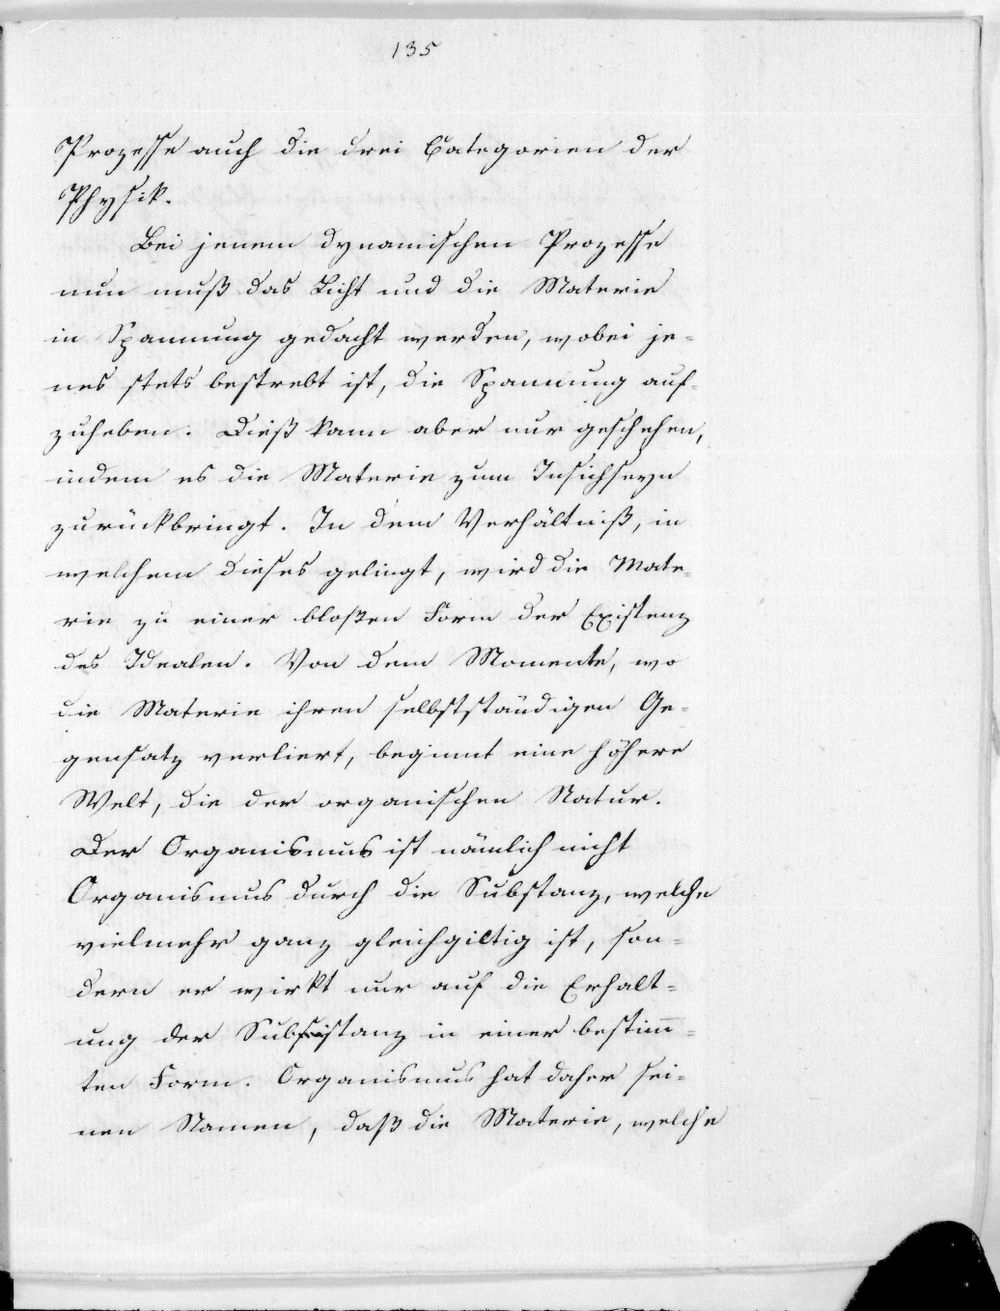 135
Prozesse auch die drei Categorien der
Physik.
Bei jenem dynamischen Prozesse
nun muß das Licht und die Materie
in Spannung gedacht werden, wobei je-
nes stets bestrebt ist, die Spannung auf-
zuheben. Dieß kann aber nur geschehen,
indem es die Materie zum Insichseyn
zurückbringt. In dem Verhältniß, in
welchem dieses gelingt, wird die Mate-
rie zu einer bloßen Form der Existenz
des Idealen. Von dem Momente, wo
die Materie ihren selbstständigen Ge-
gensatz verliert, beginnt eine höhere
Welt, die der organischen Natur.
Der Organismus ist nämlich nicht
Organismus durch die Substanz, welche
vielmehr ganz gleichgiltig ist, son-
dern er wirkt nur auf die Erhalt-
ung der Substanz in einer bestim̅-
ten Form. Organismus hat daher sei-
nen Namen, daß die Materie, welche